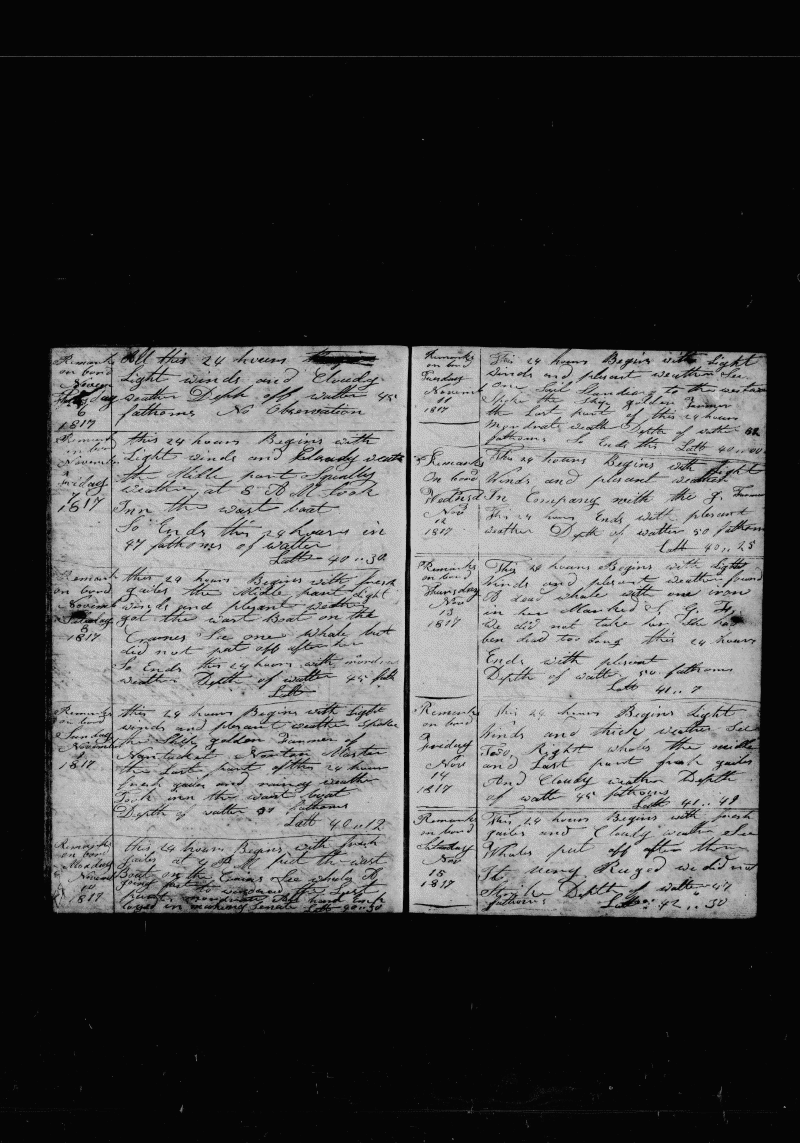 Remarks
on bord
Novem
Thursday
6
1817
All this 24 hours
Light winds and Cloudy
weather Depth off watter 45
fathoms No Observation
Remarks
on bord
November
Friday
7
1817
this 24 hours Begins with
Light winds and Cloudy weath
the Middle part Squally
weather at 8 A M took
Inn the wast boat
So Ends this 24 hours in
47 fathoms of watter
Latt 40 .. 30
Remark
on bord
Novemb
Saturday
8
1817
this 24 hours Begins with fresh
gailes the Middle part Light
winds and plesant weather
got the wast Boat on the
Cranes See one whale but
did not put off after her
So Ends this 24 hours with
weather Depth of watter 45 fath
Latt
Remarks
on bord
Sunday
Novemb
9
1817
this 24 hours Begins with Light
winds and plesant weather Spoke
the Ship golden Farmer of
Nantucket Master
the Last part of this 24 hours
fresh gailes and rainey weather
Took inn the wast boat
Depth of watter fathoms
Latt 40 .. 12
Remarks
on bord
Monday
Novemb
10
1817
this 24 hours Begins with fresh
Gailes at 4 P M put the wast
Boat on the Cranes See whales
the Last
part hard
in making Latt 40 .. 30
Remarks
on bord
Tuesday
Novemb
11
1817
This 24 hours Begins with Light
winds and plesant weather See
one Sail Standing to the
Spoke the Ship golden Farmer
the Last part of this 24 hours
weath Depth of watter
fathoms So Ends this Latt 40 .. 00
Remarks
On bord
Wednsd
Nov
12
1817
This 24 hours Begins with Light
Winds and plesant weather
In Company with the g. Farmer
This 24 hours Ends with plesant
weather Depth of watter 50 fathom
Latt 40 .. 25
Remarks
on bord
Thursday
Nov
13
1817
This 24 hours Begins with Light
Winds and plesant weather found
A dead whale with one iron
in her Marked S. G. F.
We did not take her She had
ben dead too Long this 24 hours
Ends with plesant
Depth of watter 50 fathoms
Latt 41 .. 7
Remarks
on bord
Friday
Nov
14
1817
this 24 hours Begins Light
winds and thick weather See
Two Right whales the middle
and Last part fresh gailes
And Cloudy weather Depth
of watter 45 fathoms
Latt 41 .. 49
Remarks
on bord
Saturday
Nov
15
1817
This 24 hours Begins with fresh
gailes and Cloudy weather See
Whales put off after them
It being Ruged we did not
Strike Depth of watter 47
fathoms Latt 42 .. 30